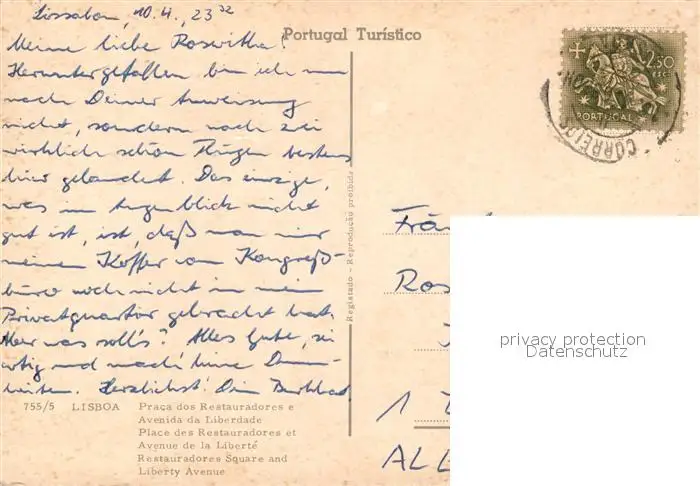 Lissabon, 10.4., 23³²
Portugal Turístico
Meine liebe Roswitha!
Heruntergefallen bin ich nun
nach Deiner Anweisung
nicht, sondern nach zwei
wirklich schön Flügen bestens
hier gelandet. Das einzige,
was im Augenblick nicht
gut ist, ist, daß man mir
meinen Koffer vom Kongreß-
büro noch nicht in mein
Privatquartier gebracht hat.
Aber was soll's? Alles Gute, sei
artig und mach' keine Dumm-
heiten. Herzlichst! Dein
2$50
PORTUGAL
CORREIOS
Registado - Reprodução proibida
Frä
Ros
1
ALL
privacy protection
Datenschutz
755/5 LISBOA Praça dos Restauradores e
Avenida da Liberdade
Place des Restauradores et
Avenue de la Liberté
Restauradores Square and
Liberty Avenue